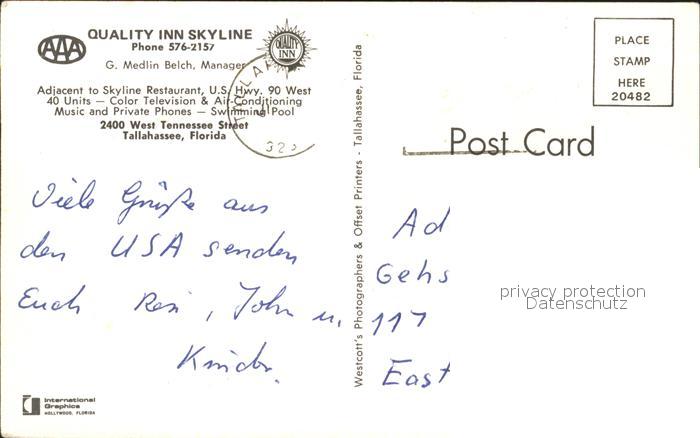 AAA
QUALITY INN SKYLINE
Phone 576-2157
G. Medlin Belch, Manager
QUALITY
INN
Adjacent to Skyline Restaurant, U.S. Hwy. 90 West
40 Units — Color Television & Air-Conditioning
Music and Private Phones — Swimming Pool
2400 West Tennessee Street
Tallahassee, Florida
PLACE
STAMP
HERE
20482
Post Card
Viele Grüße aus
den USA senden
Euch Resi, John u.
Kinder.
Westcott's Photographers & Offset Printers - Tallahassee, Florida
Ad
Gehs
117
East
privacy protection
Datenschutz
International
Graphics
HOLLYWOOD, FLORIDA